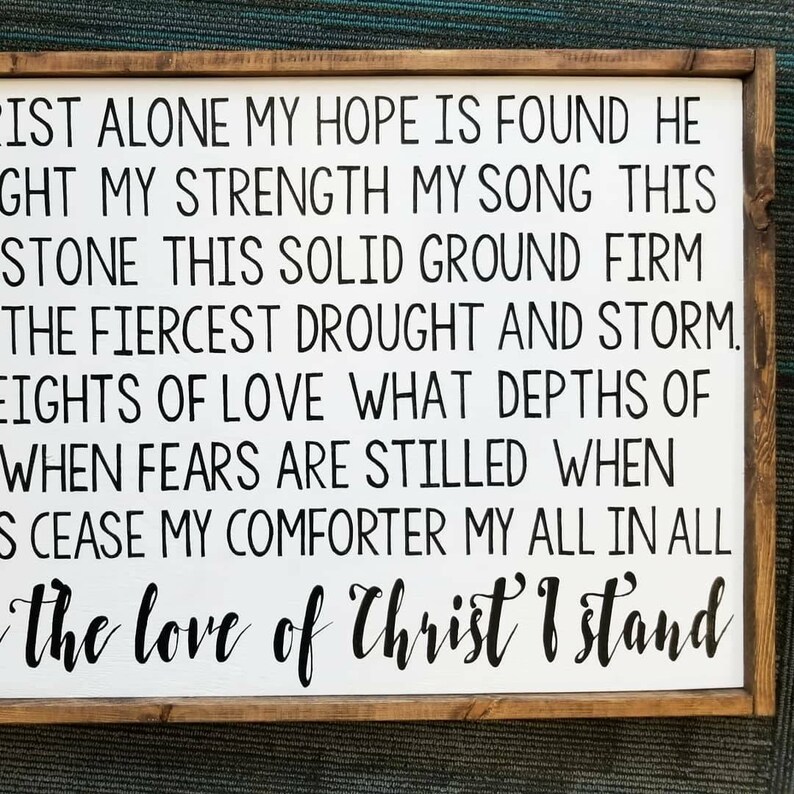 RIST ALONE MY HOPE IS FOUND HE
GHT MY STRENGTH MY SONG THIS
STONE THIS SOLID GROUND FIRM
THE FIERCEST DROUGHT AND STORM.
EIGHTS OF LOVE WHAT DEPTHS OF
WHEN FEARS ARE STILLED WHEN
S CEASE MY COMFORTER MY ALL IN ALL
the love of Christ I stand